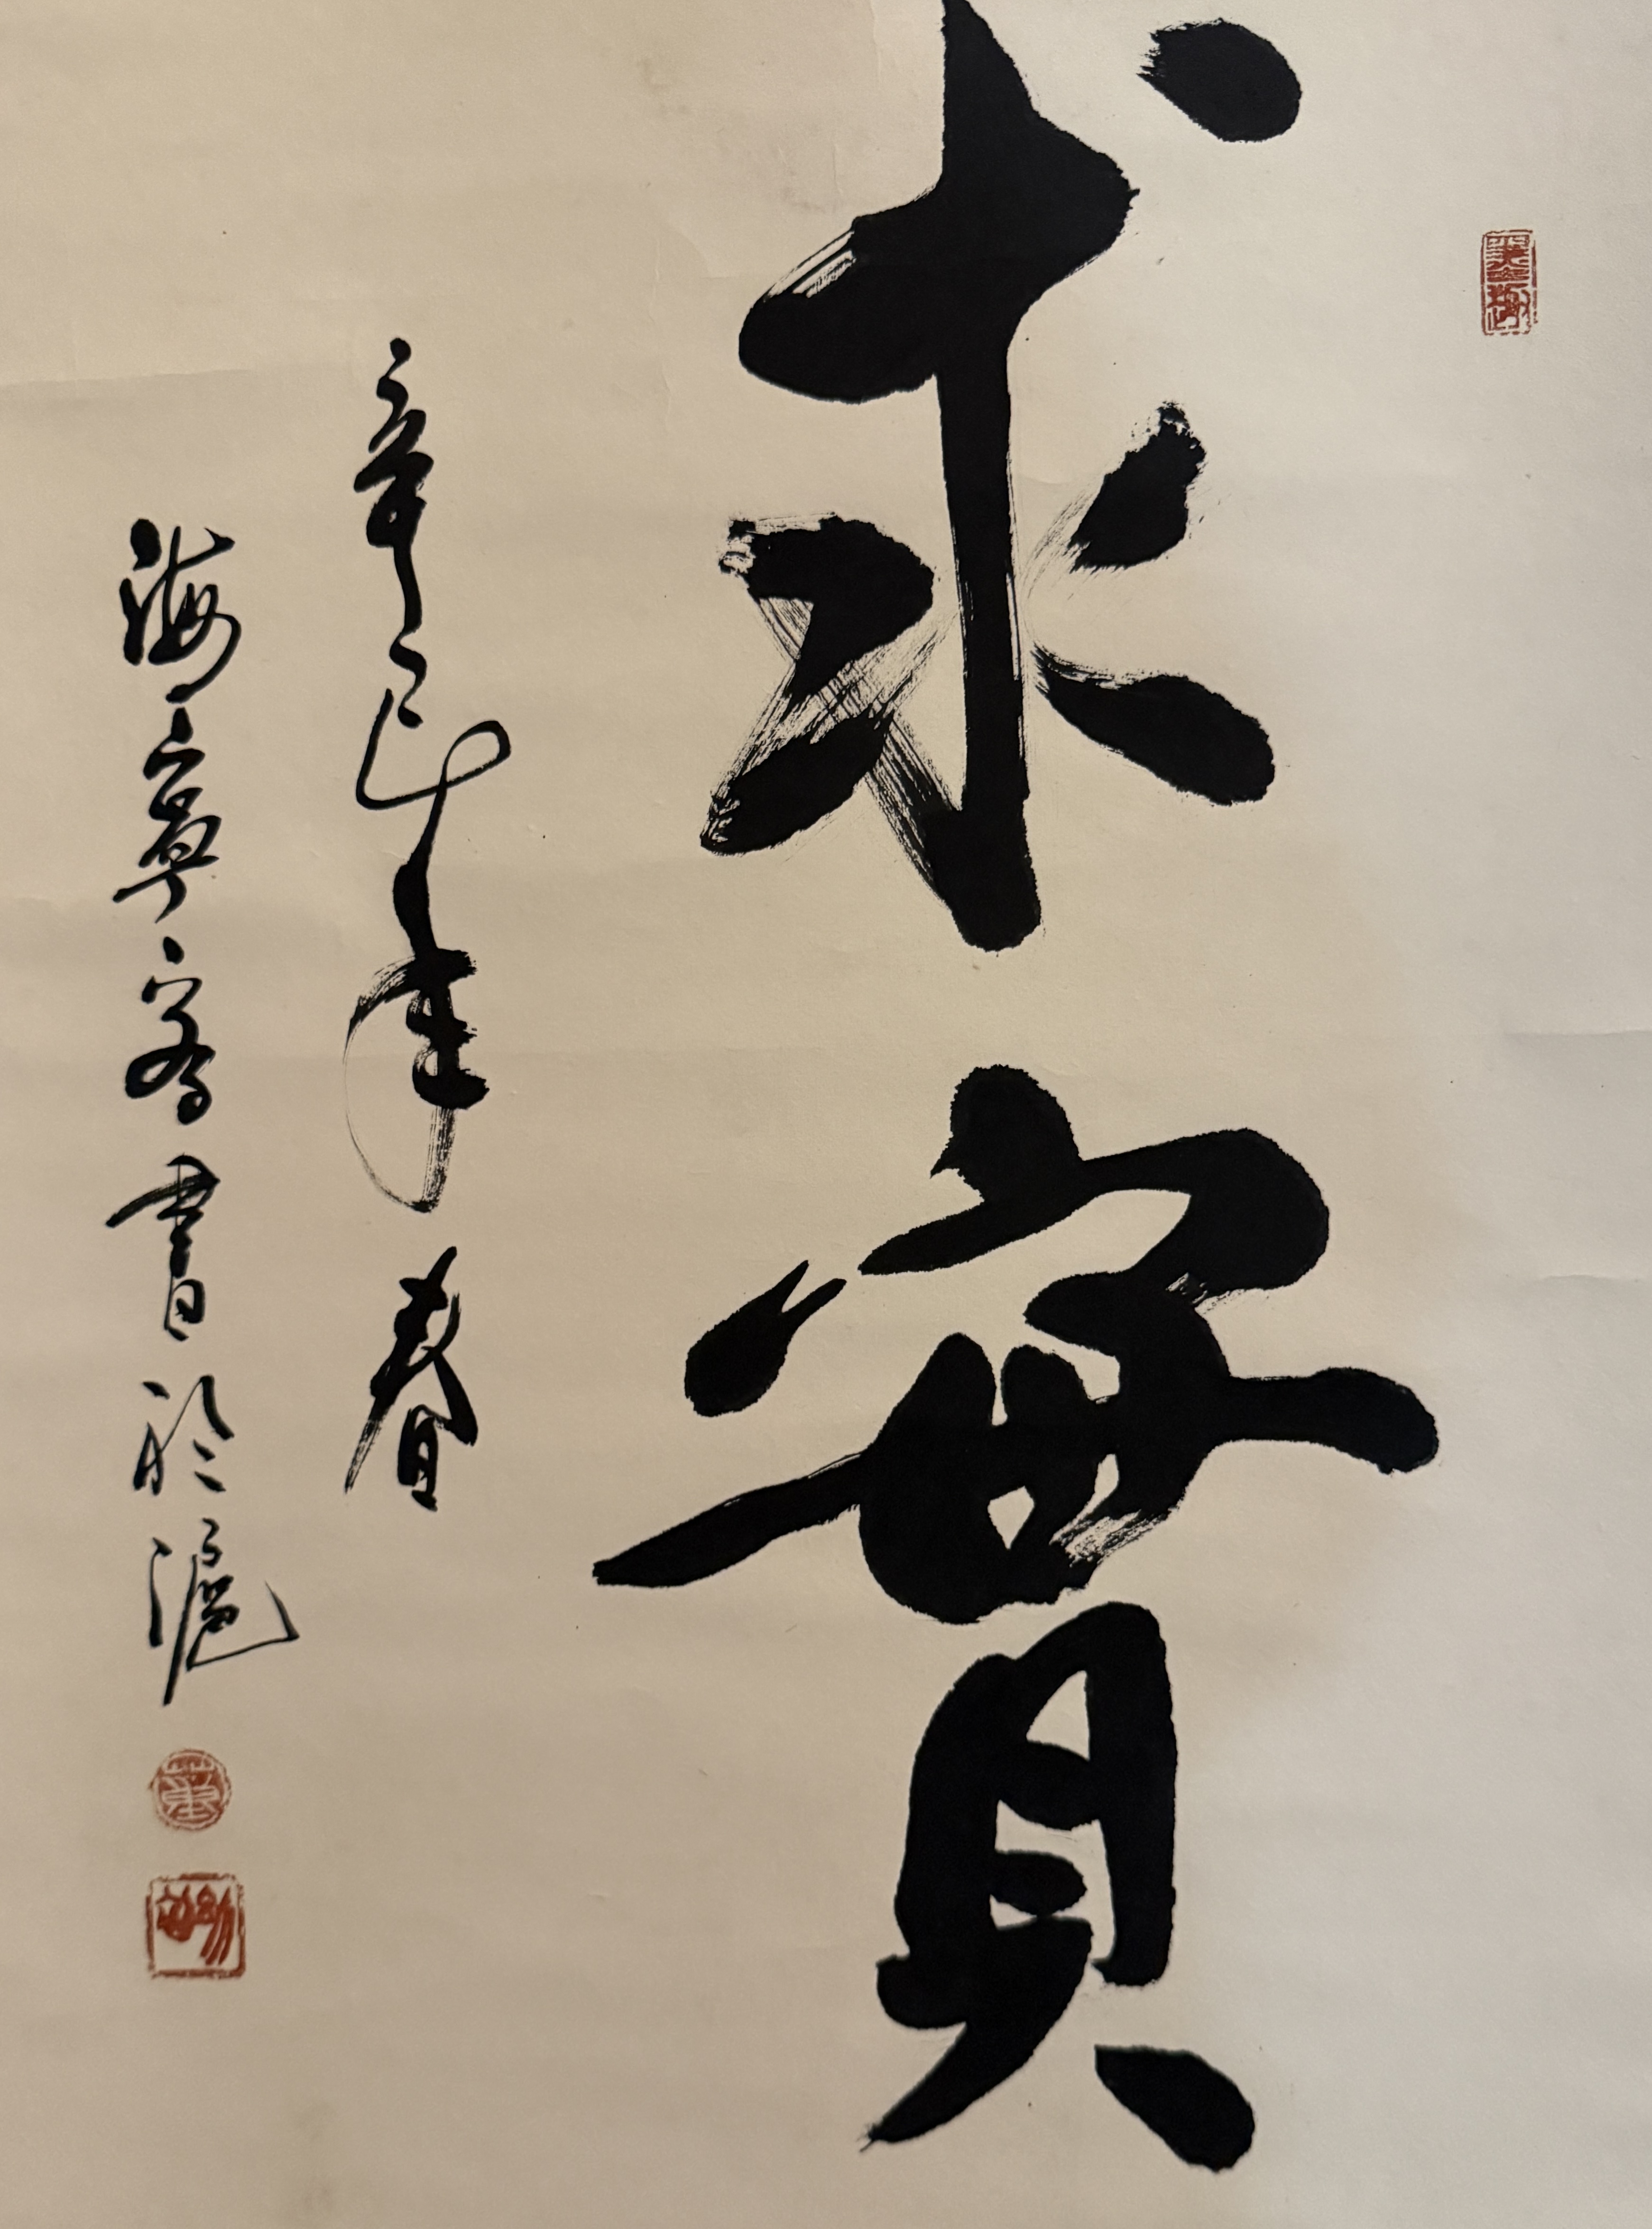 求實
辛巳年春
海寧喬書於滬